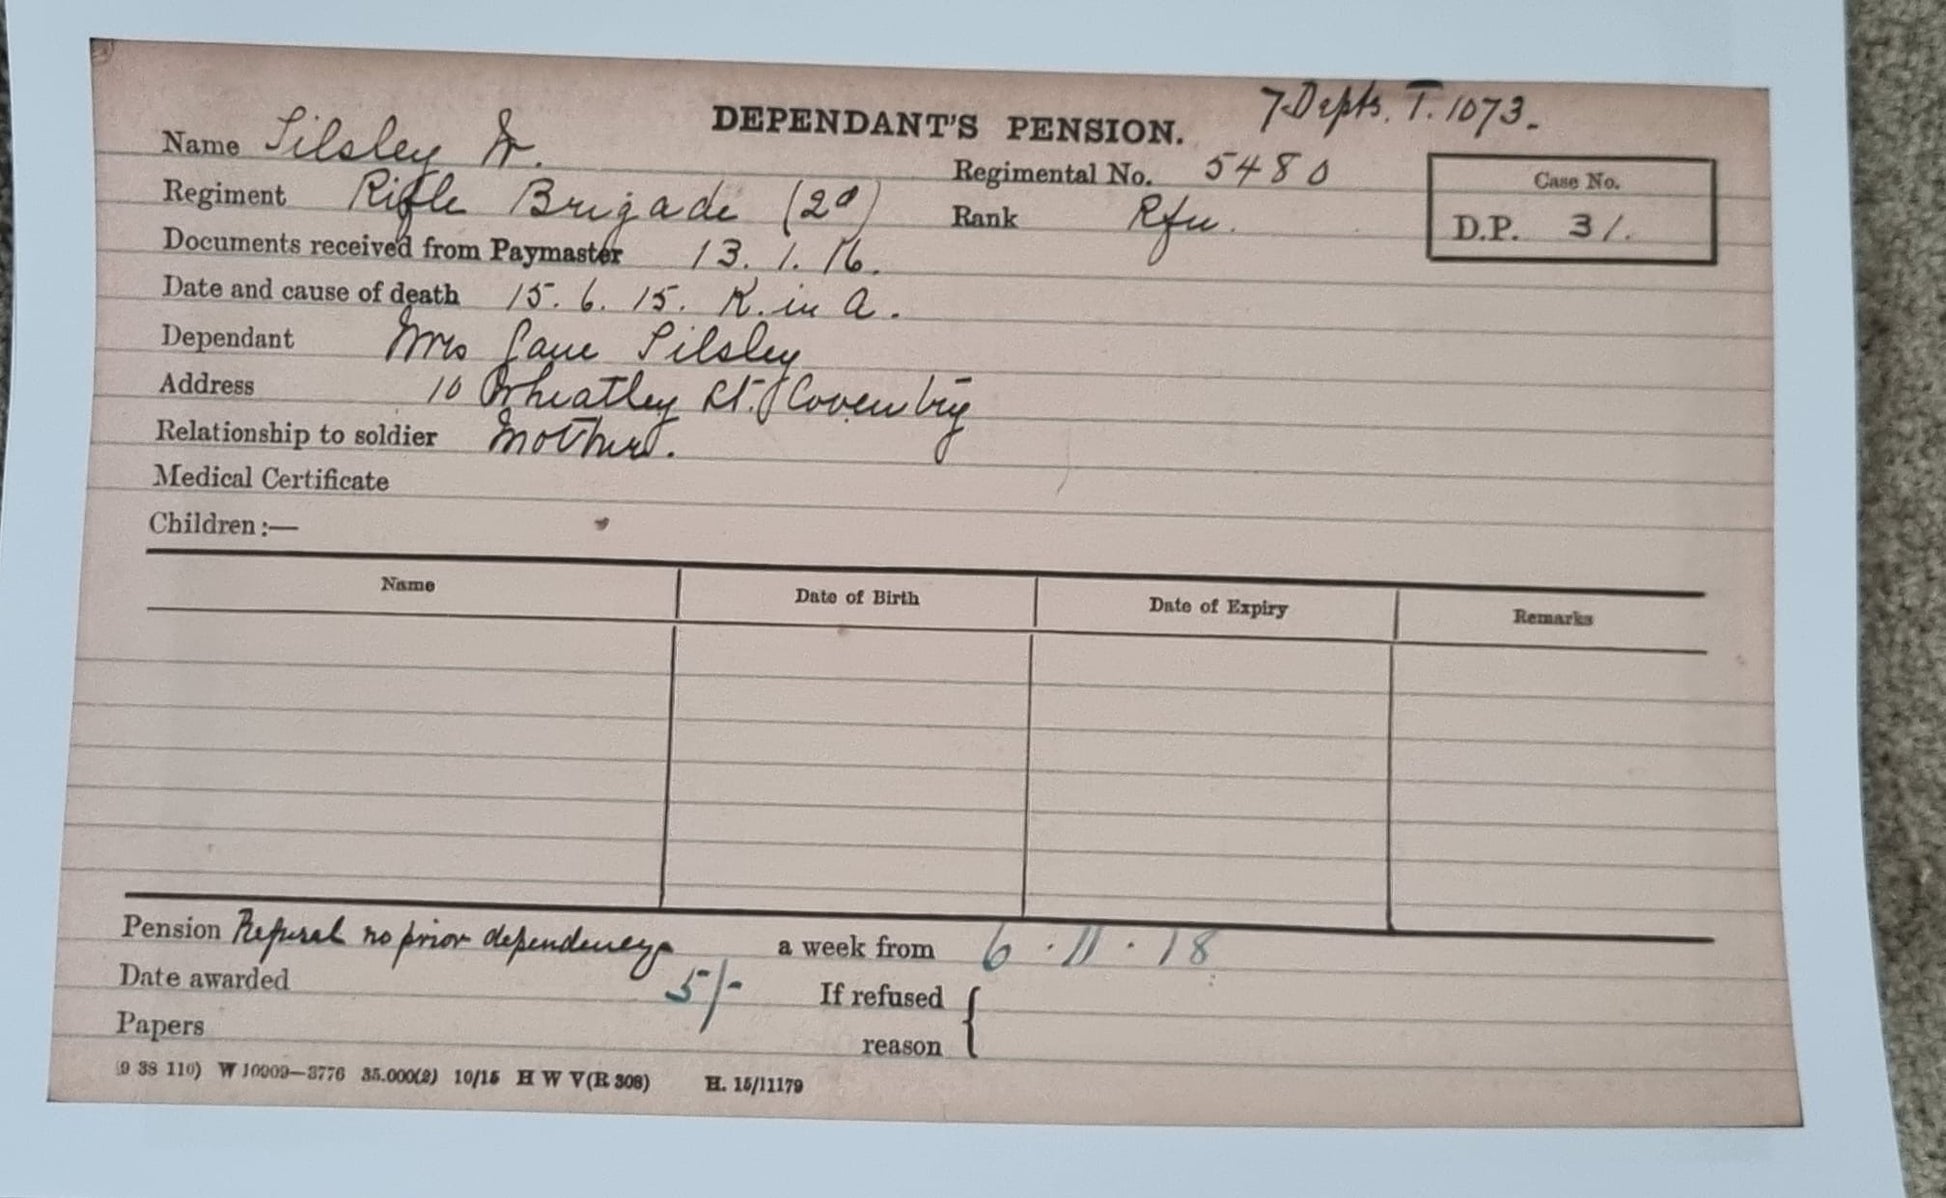 7 Depts. T. 1073.
DEPENDANT'S PENSION.
Name Tilsley W.
Regimental No. 5480
Case No.
Regiment Rifle Brigade (2d)
Rank Rfn.
D.P. 31.
Documents received from Paymaster 13. 1. 16.
Date and cause of death 15. 6. 15. K. in A.
Dependant Mrs Jane Tilsley
Address 10 Wheatley St. Coventry
Relationship to soldier Mother.
Medical Certificate
Children :—
Name Date of Birth Date of Expiry Remarks
Pension Refusal no prior dependency a week from 6 . 11 . 18
Date awarded 5/- If refused
Papers reason
(9 38 110) W 10909—3776 35.000(2) 10/15 H W V(R 308) H. 15/11179